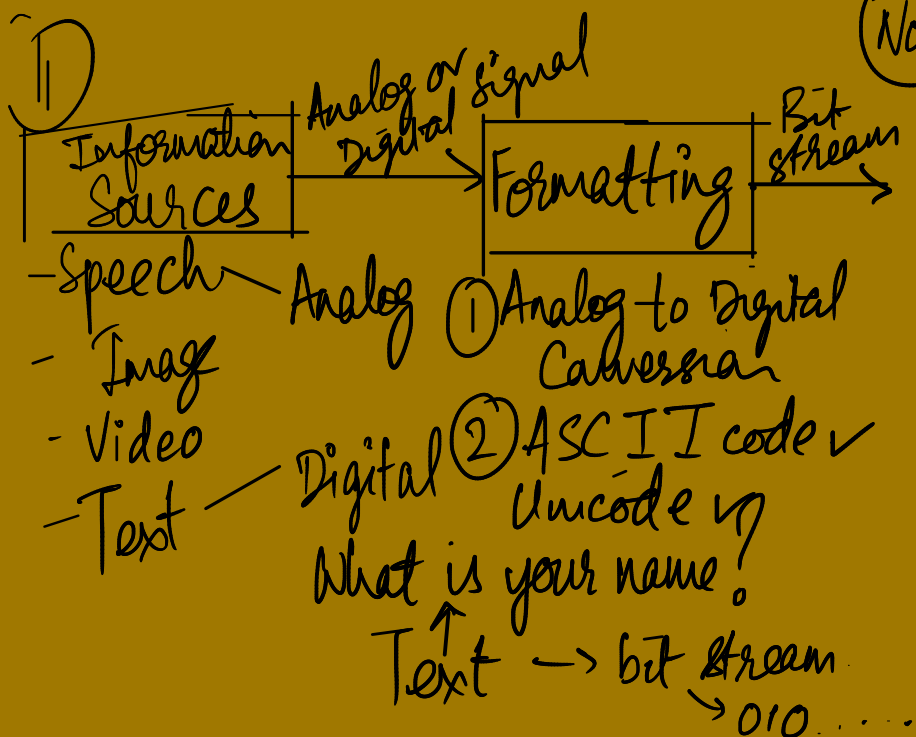 1
No
Analog or
Digital signal
Information
Sources
Formatting
Bit
stream
- Speech
Analog
- Image
- Video
- Text
Digital
① Analog to Digital
Conversion
② ASCII code ✓
Unicode ✓
What is your name?
Text → bit stream
010.....